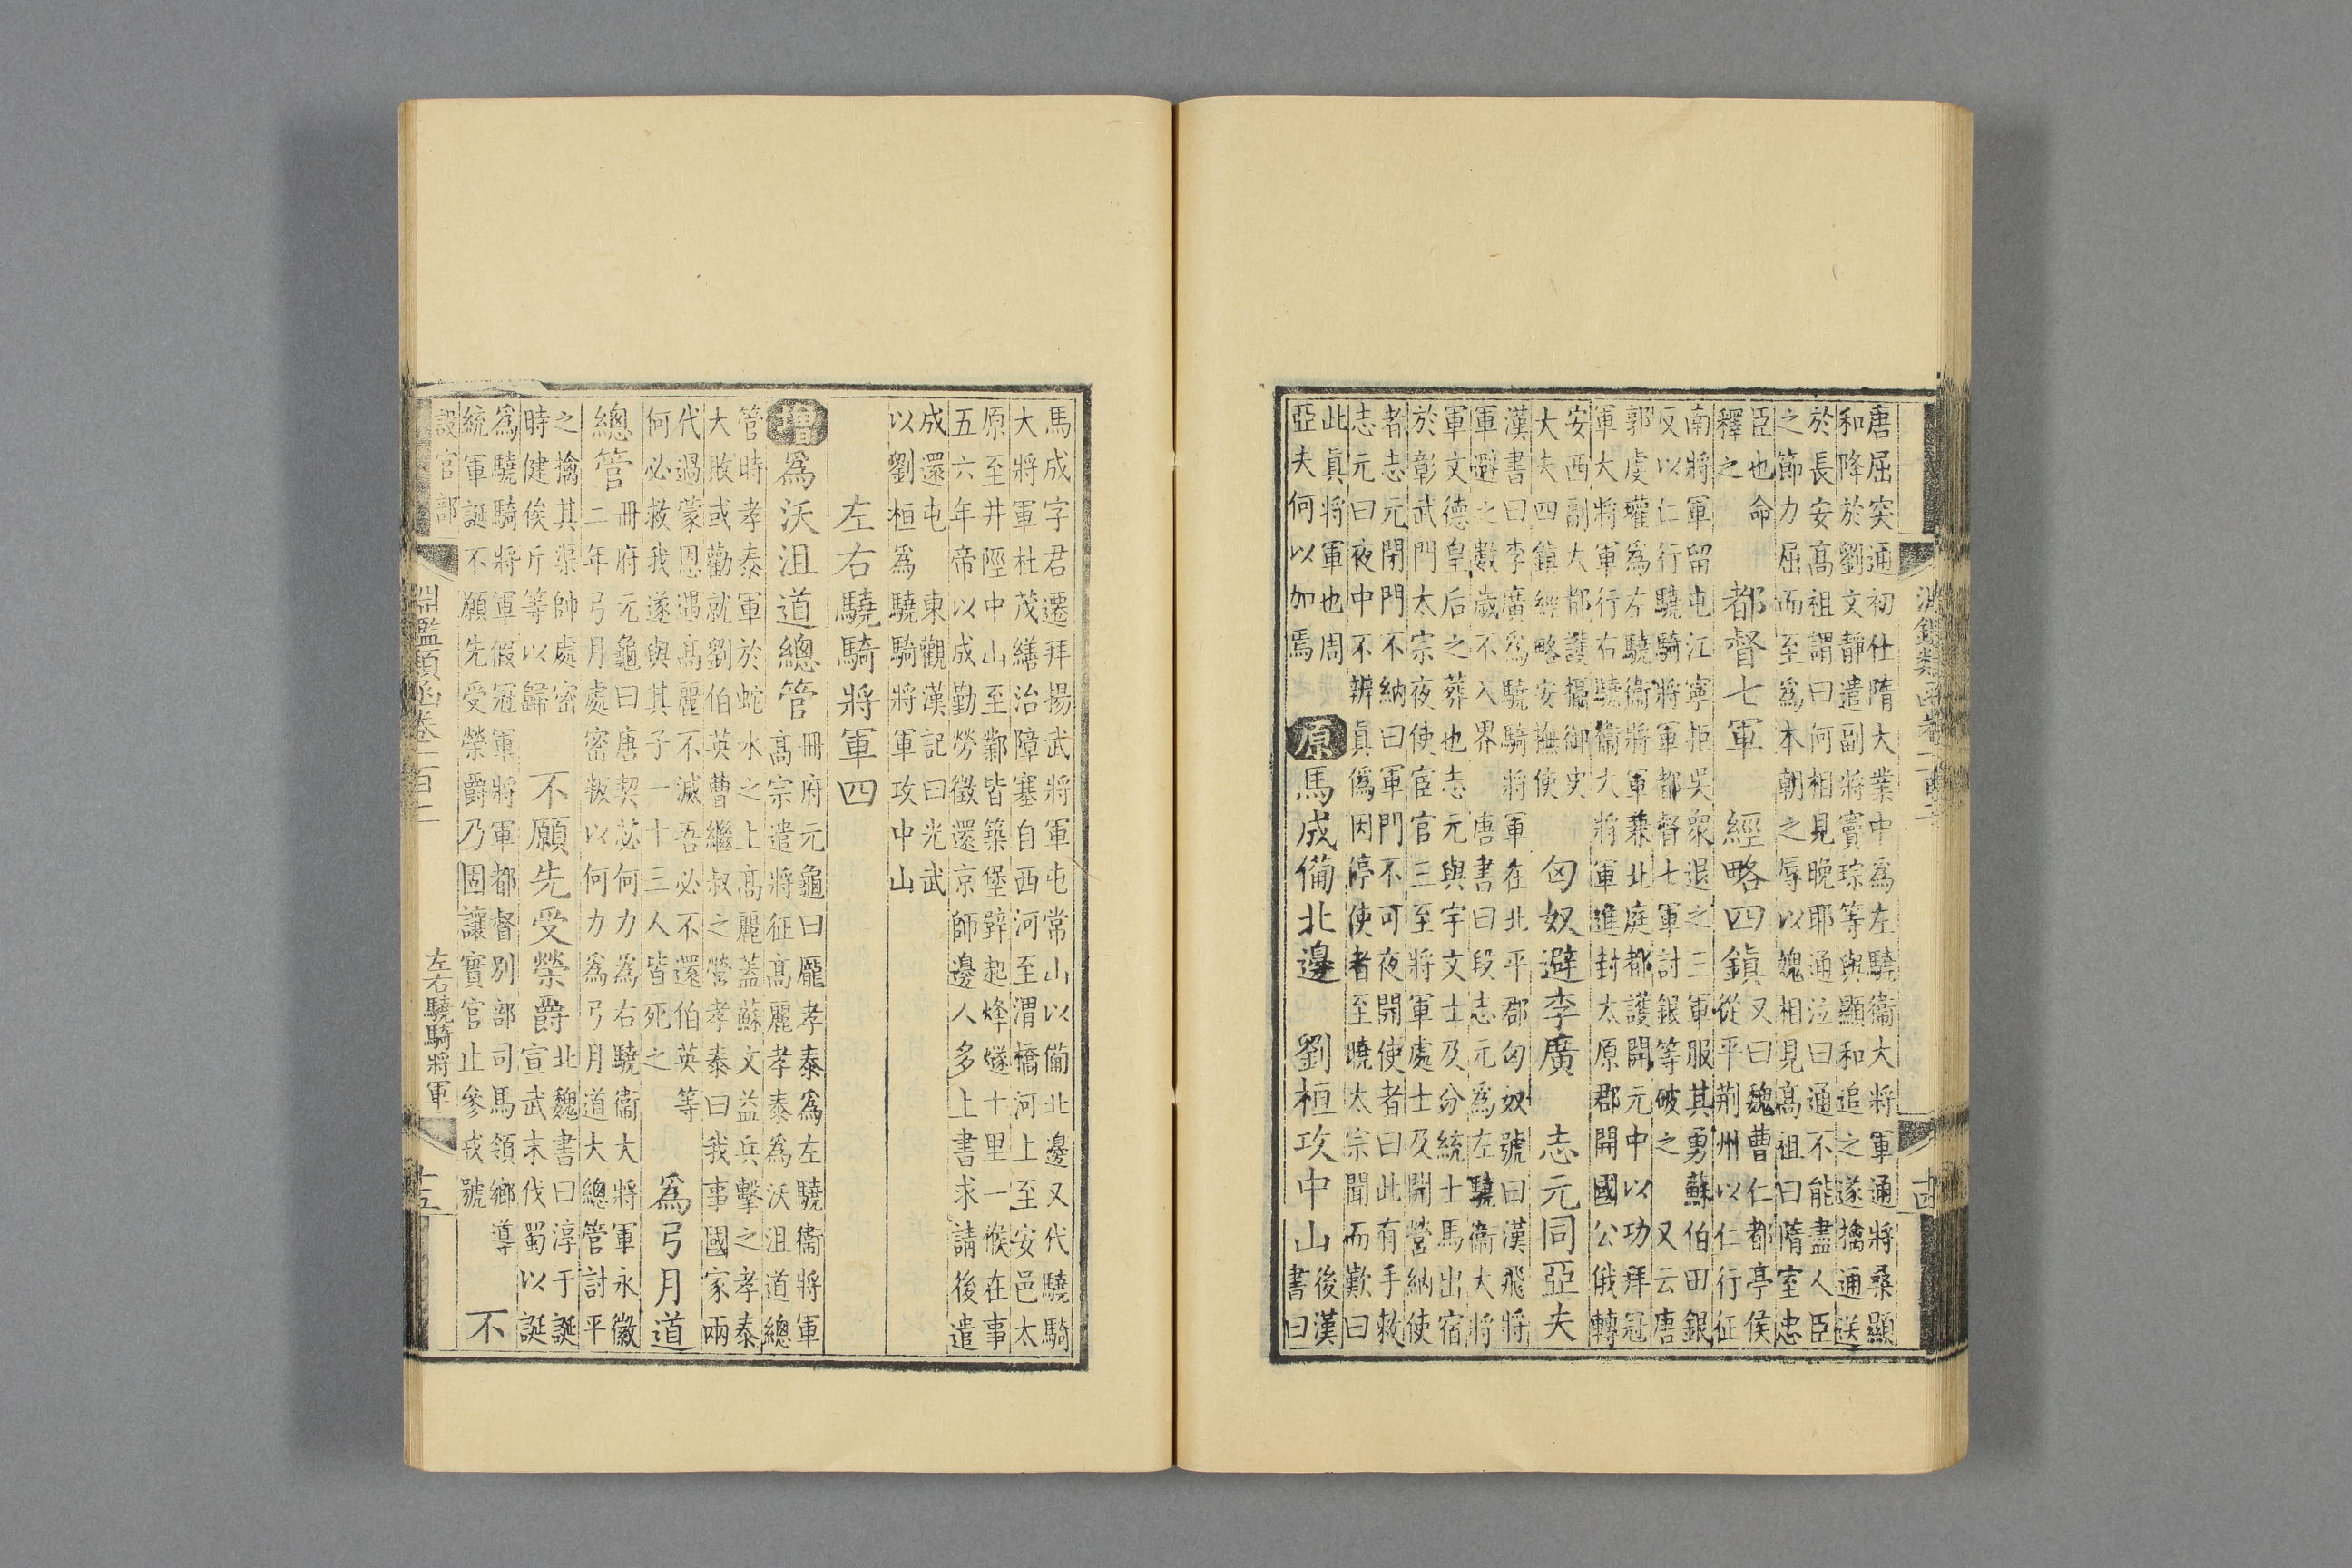 唐屈突通初仕隋大業中為左驍衞大將軍通將桑顯
和降於劉文靜遣副將竇琮等與顯和追之遂擒通送
於長安高祖謂曰何相見晚耶通泣曰通不能盡人臣
之節力屈而至為本朝之辱以媿相見高祖曰隋室忠
臣也命
釋之
都督七軍 經略四鎮
又曰魏曹仁都亭侯
從平荆州以仁行征
南將軍留屯江寧拒吳衆退之三軍服其勇蘇伯田銀
反以仁行驍騎將軍都督七軍討銀等破之 又云唐
郭虔瓘為左驍衞將軍兼北庭都護開元中以功拜冠
軍大將軍行右驍衞大將軍進封太原郡開國公俄轉
安西副大都護攝御史
大夫四鎮經略安撫使
匈奴避李廣 志元同亞夫
漢書曰李廣為驍騎將軍在北平郡匈奴號曰漢飛將
軍避之數歲不入界 唐書曰段志元為左驍衞大將
軍文德皇后之葬也志元與宇文士及分統士馬出宿
於彰武門太宗夜使宦官三至將軍處士及開營納使
者志元閉門不納曰軍門不可夜開使者曰此有手敕
志元曰夜中不辨真偽因停使者至曉太宗聞而歎曰
此真將軍也周
亞夫何以加焉
原馬成備北邊 劉桓攻中山
後漢
書曰
馬成字君遷拜揚武將軍屯常山以備北邊又代驍騎
大將軍杜茂繕治障塞自西河至渭橋河上至安邑太
原至井陘中山至鄴皆築堡壁起烽燧十里一候在事
五六年帝以成勤勞徵還京師邊人多上書求請後遣
成還屯 東觀漢記曰光武
以劉桓為驍騎將軍攻中山
左右驍騎將軍四
增為沃沮道總管
冊府元龜曰龐孝泰為左驍衞將軍
高宗遣將征高麗孝泰為沃沮道總
管時孝泰軍於蛇水之上高麗蓋蘇文益兵擊之孝泰
大敗或勸就劉伯英曹繼叔之營孝泰曰我事國家兩
代過蒙恩遇高麗不滅吾必不還伯英等
何必救我遂與其子一十三人皆死之
為弓月道
總管
冊府元龜曰唐契苾何力為右驍衞大將軍永徽
二年弓月處密叛以何力為弓月道大總管討平
之擒其渠帥處密
時健俟斤等以歸
不願先受榮爵
北魏書曰淳于誕
宣武末伐蜀以誕
為驍騎將軍假冠軍將軍都督別部司馬領鄉導
統軍誕不願先受榮爵乃固讓實官止參戎號
不
設官部
淵鑑類函卷一百十
左右驍騎將軍
十五